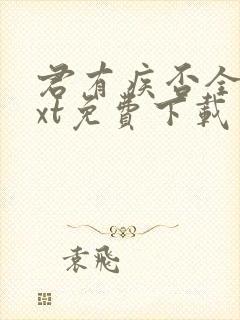 君有疾否全
xt免費下載
袁飛